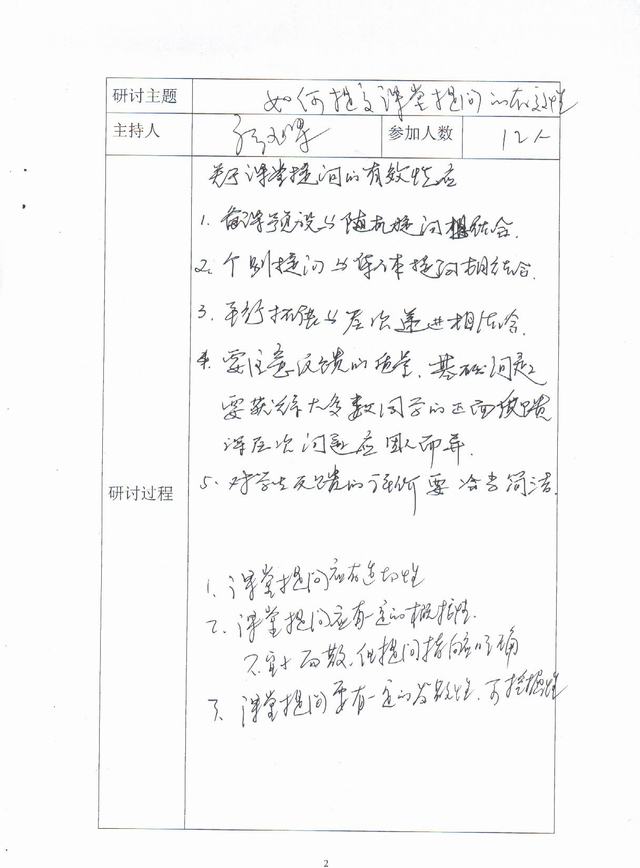 研讨主题 如何提高课堂提问的有效性
主持人 参加人数 12人
关于课堂提问的有效性应
1. 备课预设与随机提问相结合.
2. 个别提问与集体提问相结合.
3. 平行拓展与层次递进相结合.
4. 要注意反馈的质量. 基础问题
要获得大多数同学的正面反馈
层次问题应因人而异.
研讨过程
5. 对学生反馈的评价要恰当简洁.
1. 课堂提问应有适切性
2. 课堂提问应有一定的概括性.
不宜 而散, 但提问指向应明确
3. 课堂提问要有一定的发散性. 可挖掘性
2